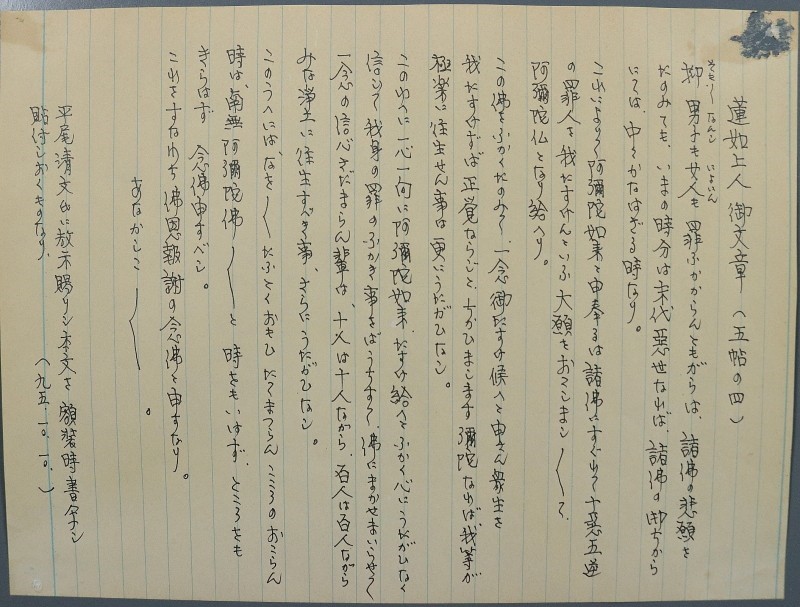 蓮如上人御文章（五帖の四）
そもそもなんし　にょいん
抑男子も女人も罪ふかからんともがらは、諸佛の悲願を
たのみても、いまの時分は末代悪世なれば、諸佛の御ちから
にては、中々かなはざる時なり。
これによりて阿彌陀如来と申奉るは諸佛にすぐれて十悪五逆
の罪人を我たすけんといふ大願をおこしましまして、
阿彌陀仏となり給へり。
この佛をふかくたのみて、一念御たすけ候へと申さん衆生を
我たすけずば正覚ならじと、ちかひまします彌陀なれば、我等が
極楽に往生せん事は更にうたがひなし。
このゆへに一心一向に阿彌陀如来、たすけ給へとふかく心にうたがひなく
信じて我身の罪のふかき事をばうちすて、佛にまかせまいらせて
一念の信心さだまらん輩は、十人は十人ながら、百人は百人ながら
みな浄土に往生すべき事、さらにうたがひなし。
このうへには、なをなをたふとくおもひたてまつらんこころのおこらん
時は、南無阿彌陀佛〳〵と時をもいはず、ところをも
きらはず念佛申すべし。
これをすなわち佛恩報謝の念佛と申すなり。
あなかしこ〳〵。
平尾清文氏に教示賜りし本文を額装時書写シ
貼付しおくものなり、（九五、一〇、一〇、）